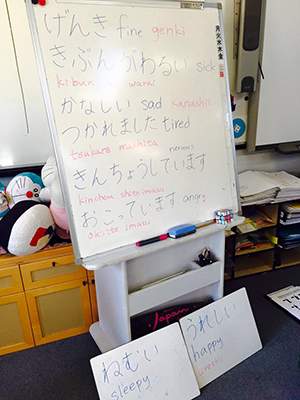 げんき fine genki
きぶん がわるい sick
kibun warui
かなしい sad kanashii
つかれました tired
tsukare mashita nervous
きんちょうしています
kinchou shiteimasu
おこっています angry
imasu
月火水木金
Japan
ねむい
sleepy
うれしい
happy